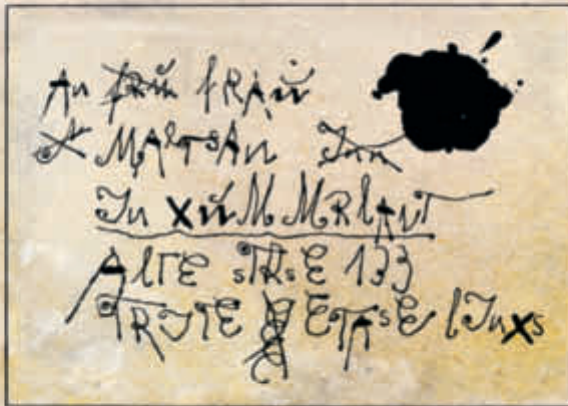 An frü fRAŭ
MAlTsAn Jnn
Jn xŭMMRlAnT
AlTE sTRsE 133
TRJTE ETAsE lJnxs